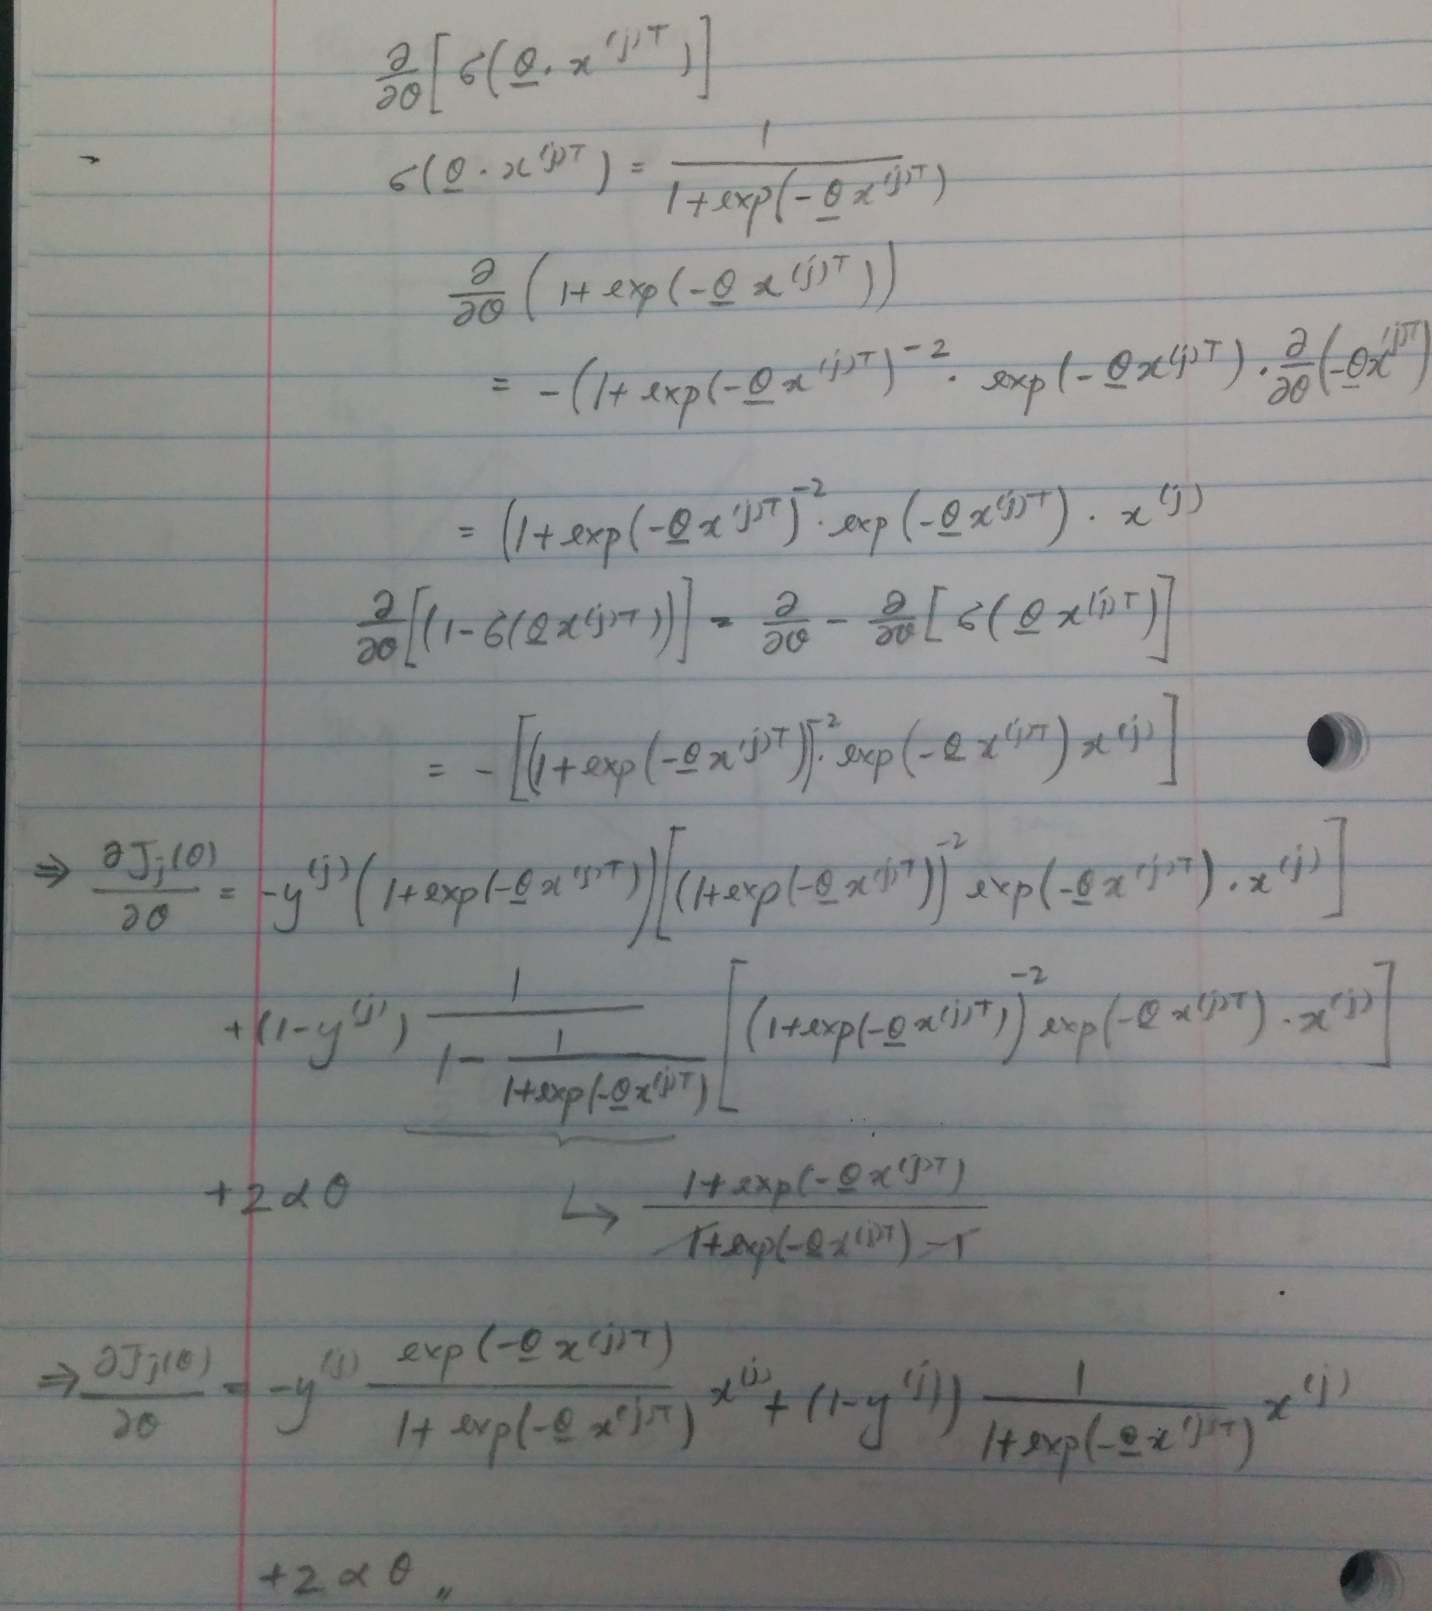 ∂/∂θ [σ(θ · x^(j)T)]
σ(θ · x^(j)T) = 1 / (1+exp(-θ x^(j)T))
∂/∂θ (1+exp(-θ x^(j)T))
= -(1+exp(-θ x^(j)T)^-2 · exp(-θ x^(j)T) · ∂/∂θ (-θ x^(j)T)
= (1+exp(-θ x^(j)T)^-2 · exp(-θ x^(j)T) · x^(j)
∂/∂θ [(1-σ(θ x^(j)T))] = ∂/∂θ - ∂/∂θ [σ(θ x^(j)T)]
= -[(1+exp(-θ x^(j)T))^-2 · exp(-θ x^(j)T) x^(j)]
⇒ ∂J_j(θ)/∂θ = -y^(j) (1+exp(-θ x^(j)T)) [(1+exp(-θ x^(j)T))^-2 exp(-θ x^(j)T) · x^(j)]
+(1-y^(j)) 1 / (1 - 1/(1+exp(-θ x^(j)T))) [(1+exp(-θ x^(j)T))^-2 exp(-θ x^(j)T) · x^(j)]
+2αθ ↳ (1+exp(-θ x^(j)T)) / (1+exp(-θ x^(j)T) -1)
⇒ ∂J_j(θ)/∂θ = -y^(j) exp(-θ x^(j)T) / (1+exp(-θ x^(j)T)) x^(j) + (1-y^(j)) 1 / (1+exp(-θ x^(j)T)) x^(j)
+2αθ ,,